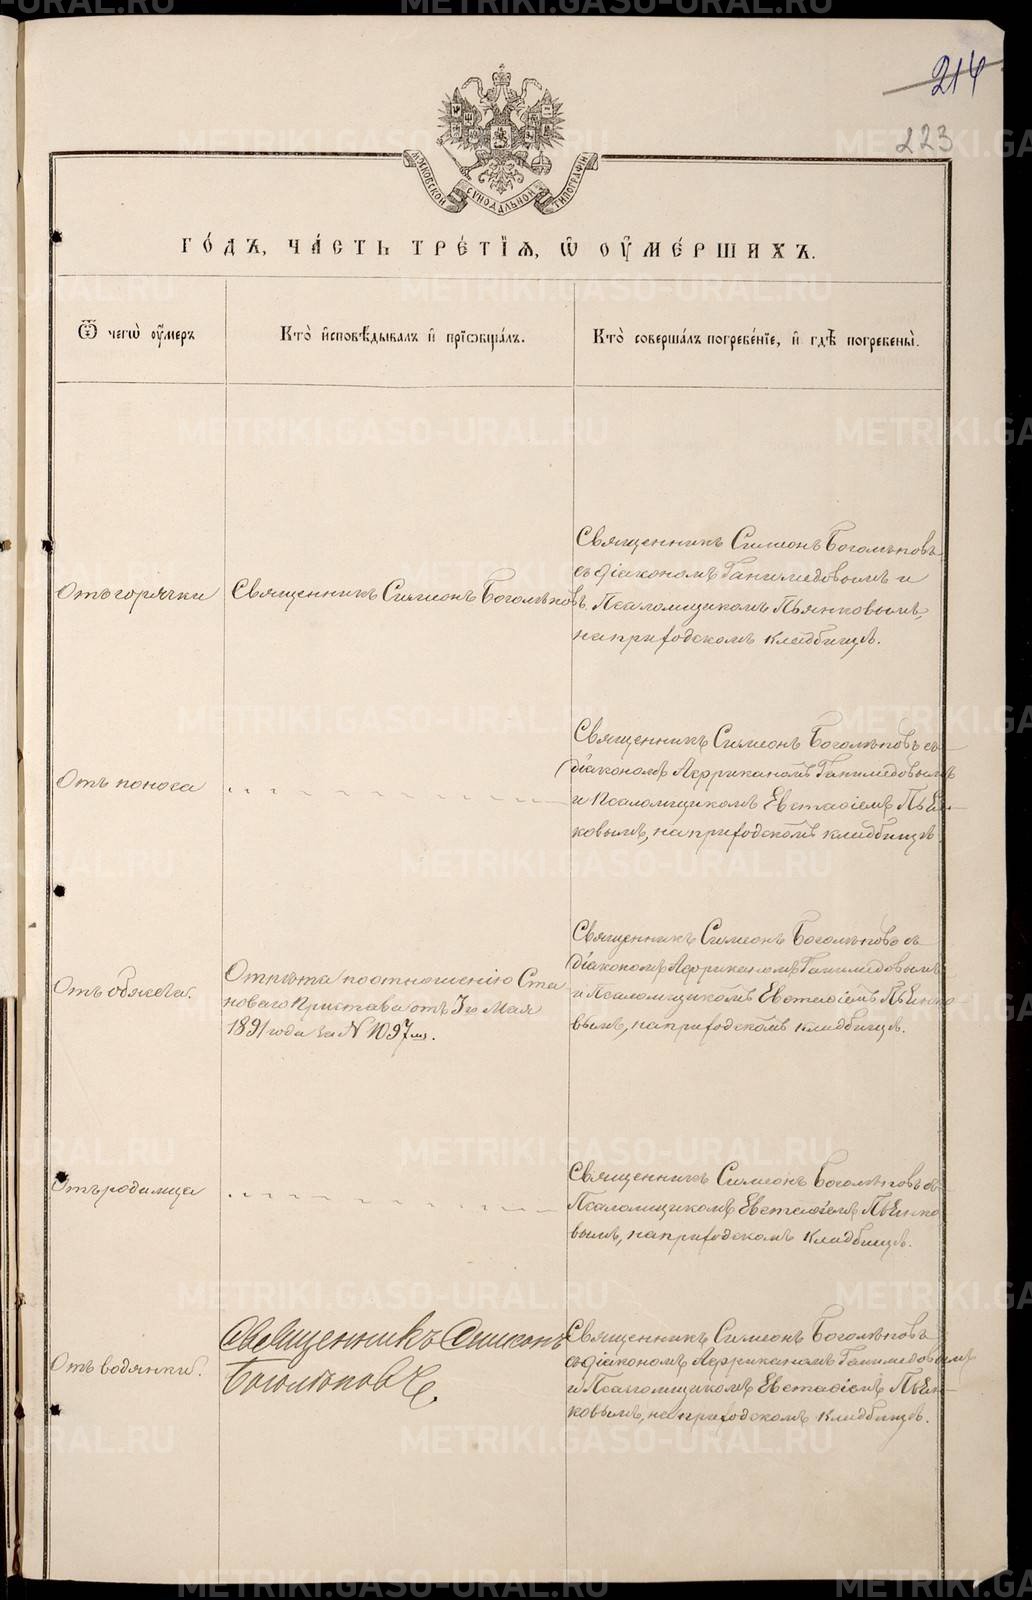 214
223
МОСКОВСКОЙ СУНОДАЛЬНОЙ ТИПОГРАФІИ
ГО́ДЪ, ЧА́СТЬ ТРЕ́ТІЯ, Ѿ ОУ҆МЕ́РШИХЪ.
Ѿ чегѡ̀ оу҆́меръ
Кто̀ и҆сповѣ́дывалъ и҆ прїѡбща́лъ.
Кто̀ соверша́лъ погребе́нїе, и҆ гдѣ̀ погребены̀.
Отъ горячки
Священникъ Симеонъ Боголѣповъ
Священникъ Симеонъ Боголѣповъ
съ діакономъ Ганимедовымъ и
Псаломщикомъ Пьянковымъ,
на приходскомъ кладбищѣ.
Отъ поноса
Священникъ Симеонъ Боголѣповъ съ
діакономъ Африканомъ Ганимедовымъ
и Псаломщикомъ Евстафіемъ Пьян-
ковымъ, на приходскомъ кладбищѣ.
Отъ обжога.
Отпѣта по отношенію Ста
новаго Пристава отъ 3го Мая
1891 года за № 1097мъ.
Священникъ Симеонъ Боголѣповъ съ
діакономъ Африканомъ Ганимедовымъ
и Псаломщикомъ Евстафіемъ Пьянко
вымъ, на приходскомъ кладбищѣ.
Отъ родимца
Священникъ Симеонъ Боголѣповъ съ
Псаломщикомъ Евстафіемъ Пьянко
вымъ, на приходскомъ кладбищѣ.
Отъ водянки.
Священникъ Симеонъ
Боголѣповъ.
Священникъ Симеонъ Боголѣповъ
съ діакономъ Африканомъ Ганимедовымъ
и Псаломщикомъ Евстафіемъ Пьян-
ковымъ, на приходскомъ кладбищѣ.
METRIKI.GASO-URAL.RU